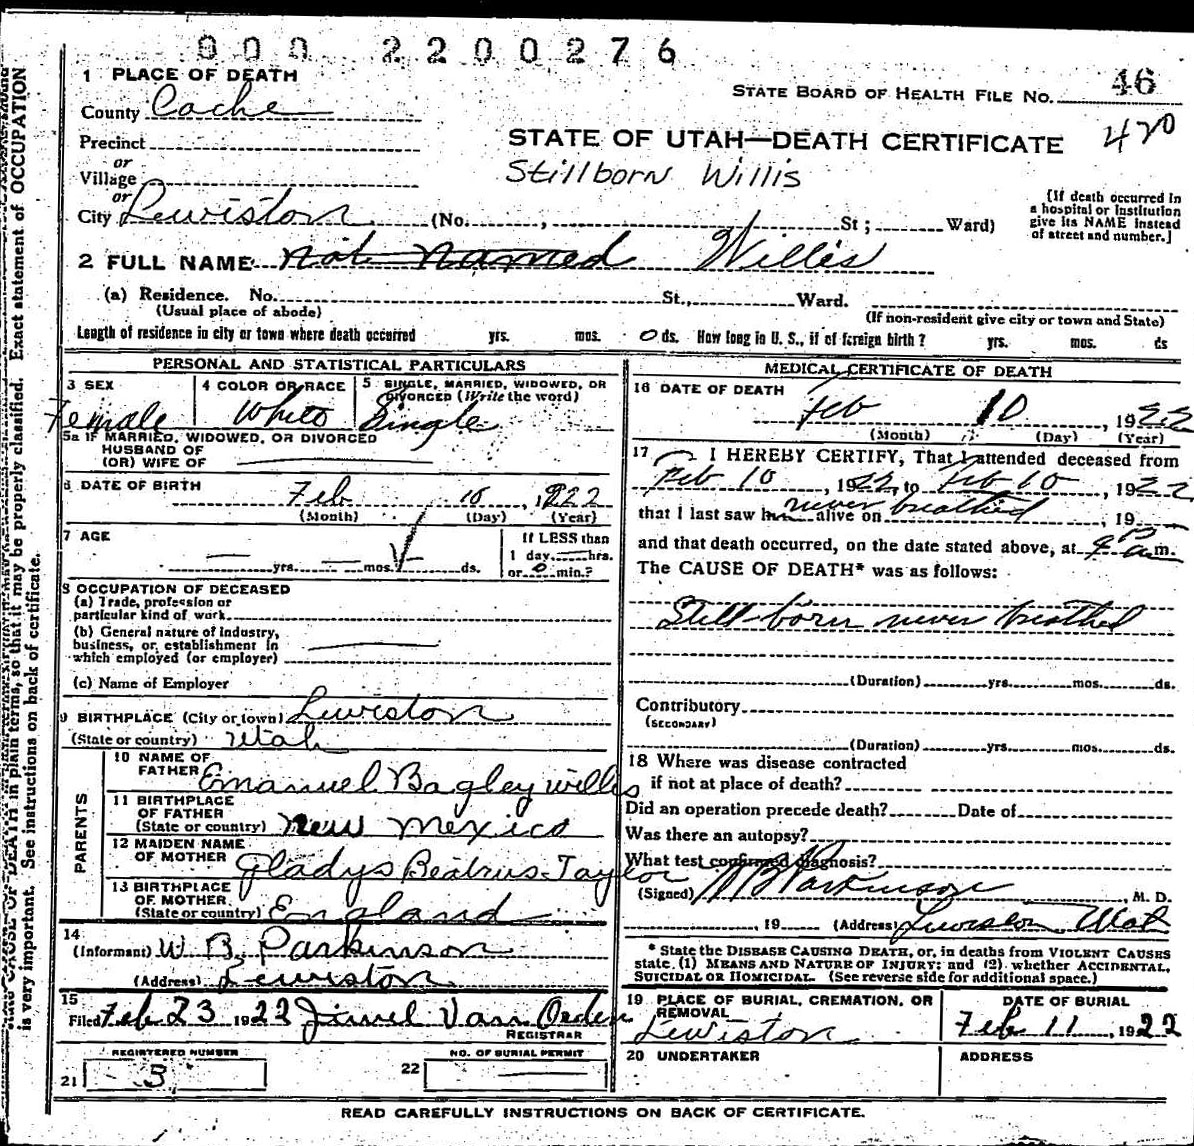 000 2200276
1 PLACE OF DEATH
STATE BOARD OF HEALTH FILE NO. 46
County Cache
420
Precinct
STATE OF UTAH—DEATH CERTIFICATE
or
Village
Stillborn Willis
or
City Lewiston (No. , St; Ward)
[If death occurred in
a hospital or institution
give its NAME instead
of street and number.]
2 FULL NAME not named Willis
(a) Residence. No. St., Ward.
(Usual place of abode)
(If non-resident give city or town and State)
Length of residence in city or town where death occurred yrs. mos. 0 ds. How long in U. S., if of foreign birth? yrs. mos. ds
PERSONAL AND STATISTICAL PARTICULARS
3 SEX
Female
4 COLOR OR RACE
White
5 SINGLE, MARRIED, WIDOWED, OR
DIVORCED (Write the word)
Single
5a IF MARRIED, WIDOWED, OR DIVORCED
HUSBAND OF
(OR) WIFE OF
6 DATE OF BIRTH
Feb 10, 1922
(Month) (Day) (Year)
7 AGE
yrs. mos. ds.
If LESS than
1 day hrs.
or 0 min.?
8 OCCUPATION OF DECEASED
(a) Trade, profession or
particular kind of work
(b) General nature of industry,
business, or establishment in
which employed (or employer)
(c) Name of Employer
9 BIRTHPLACE (City or town) Lewiston
(State or country) Utah
PARENTS
10 NAME OF
FATHER Emanuel Bagley Willis
11 BIRTHPLACE
OF FATHER
(State or country) New Mexico
12 MAIDEN NAME
OF MOTHER Gladys Beatrus Taylor
13 BIRTHPLACE
OF MOTHER
(State or country) England
14
(Informant) W B Parkinson
(Address) Lewiston
15
Filed Feb 23 1922 Van Orden
REGISTRAR
REGISTERED NUMBER
21 3
NO. OF BURIAL PERMIT
22
MEDICAL CERTIFICATE OF DEATH
16 DATE OF DEATH
Feb 10, 1922
(Month) (Day) (Year)
17 I HEREBY CERTIFY, That I attended deceased from
Feb 10, 1922, to Feb 10, 1922
that I last saw h alive on never breathed, 19
and that death occurred, on the date stated above, at m.
The CAUSE OF DEATH* was as follows:
Still-born never breathed
(Duration) yrs. mos. ds.
Contributory
(SECONDARY)
(Duration) yrs. mos. ds.
18 Where was disease contracted
if not at place of death?
Did an operation precede death? Date of
Was there an autopsy?
What test confirmed diagnosis?
(Signed) W B Parkinson, M. D.
, 19 (Address) Lewiston Utah
* State the DISEASE CAUSING DEATH, or, in deaths from VIOLENT CAUSES
state (1) MEANS AND NATURE OF INJURY; and (2) whether ACCIDENTAL,
SUICIDAL OR HOMICIDAL. (See reverse side for additional space.)
19 PLACE OF BURIAL, CREMATION, OR
REMOVAL
Lewiston
DATE OF BURIAL
Feb 11, 1922
20 UNDERTAKER
ADDRESS
READ CAREFULLY INSTRUCTIONS ON BACK OF CERTIFICATE.
state CAUSE OF DEATH in plain terms, so that it may be properly classified. Exact statement of OCCUPATION
is very important. See instructions on back of certificate.